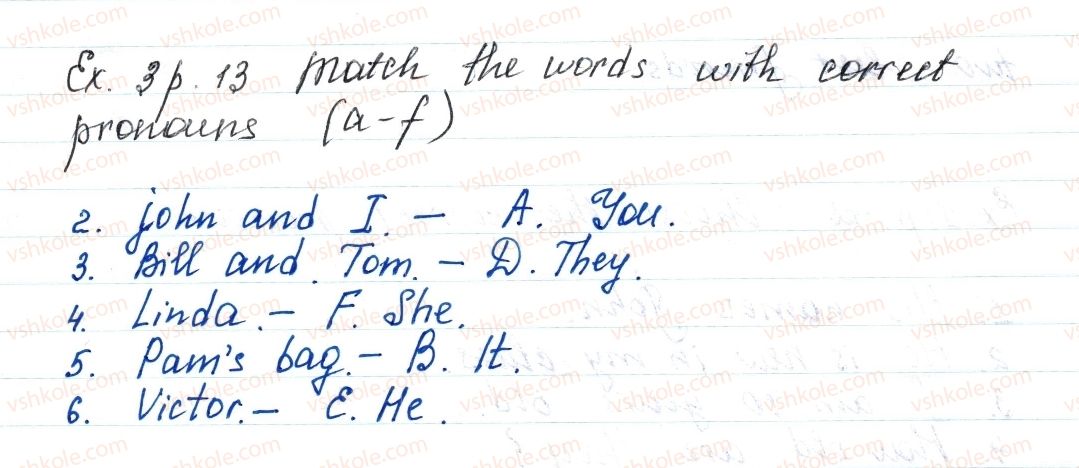 Ex. 3 p. 13 Match the words with correct
pronouns (a-f)
2. John and I. — A. You.
3. Bill and Tom. — D. They.
4. Linda. — F. She.
5. Pam's bag. — B. It.
6. Victor. — E. He.